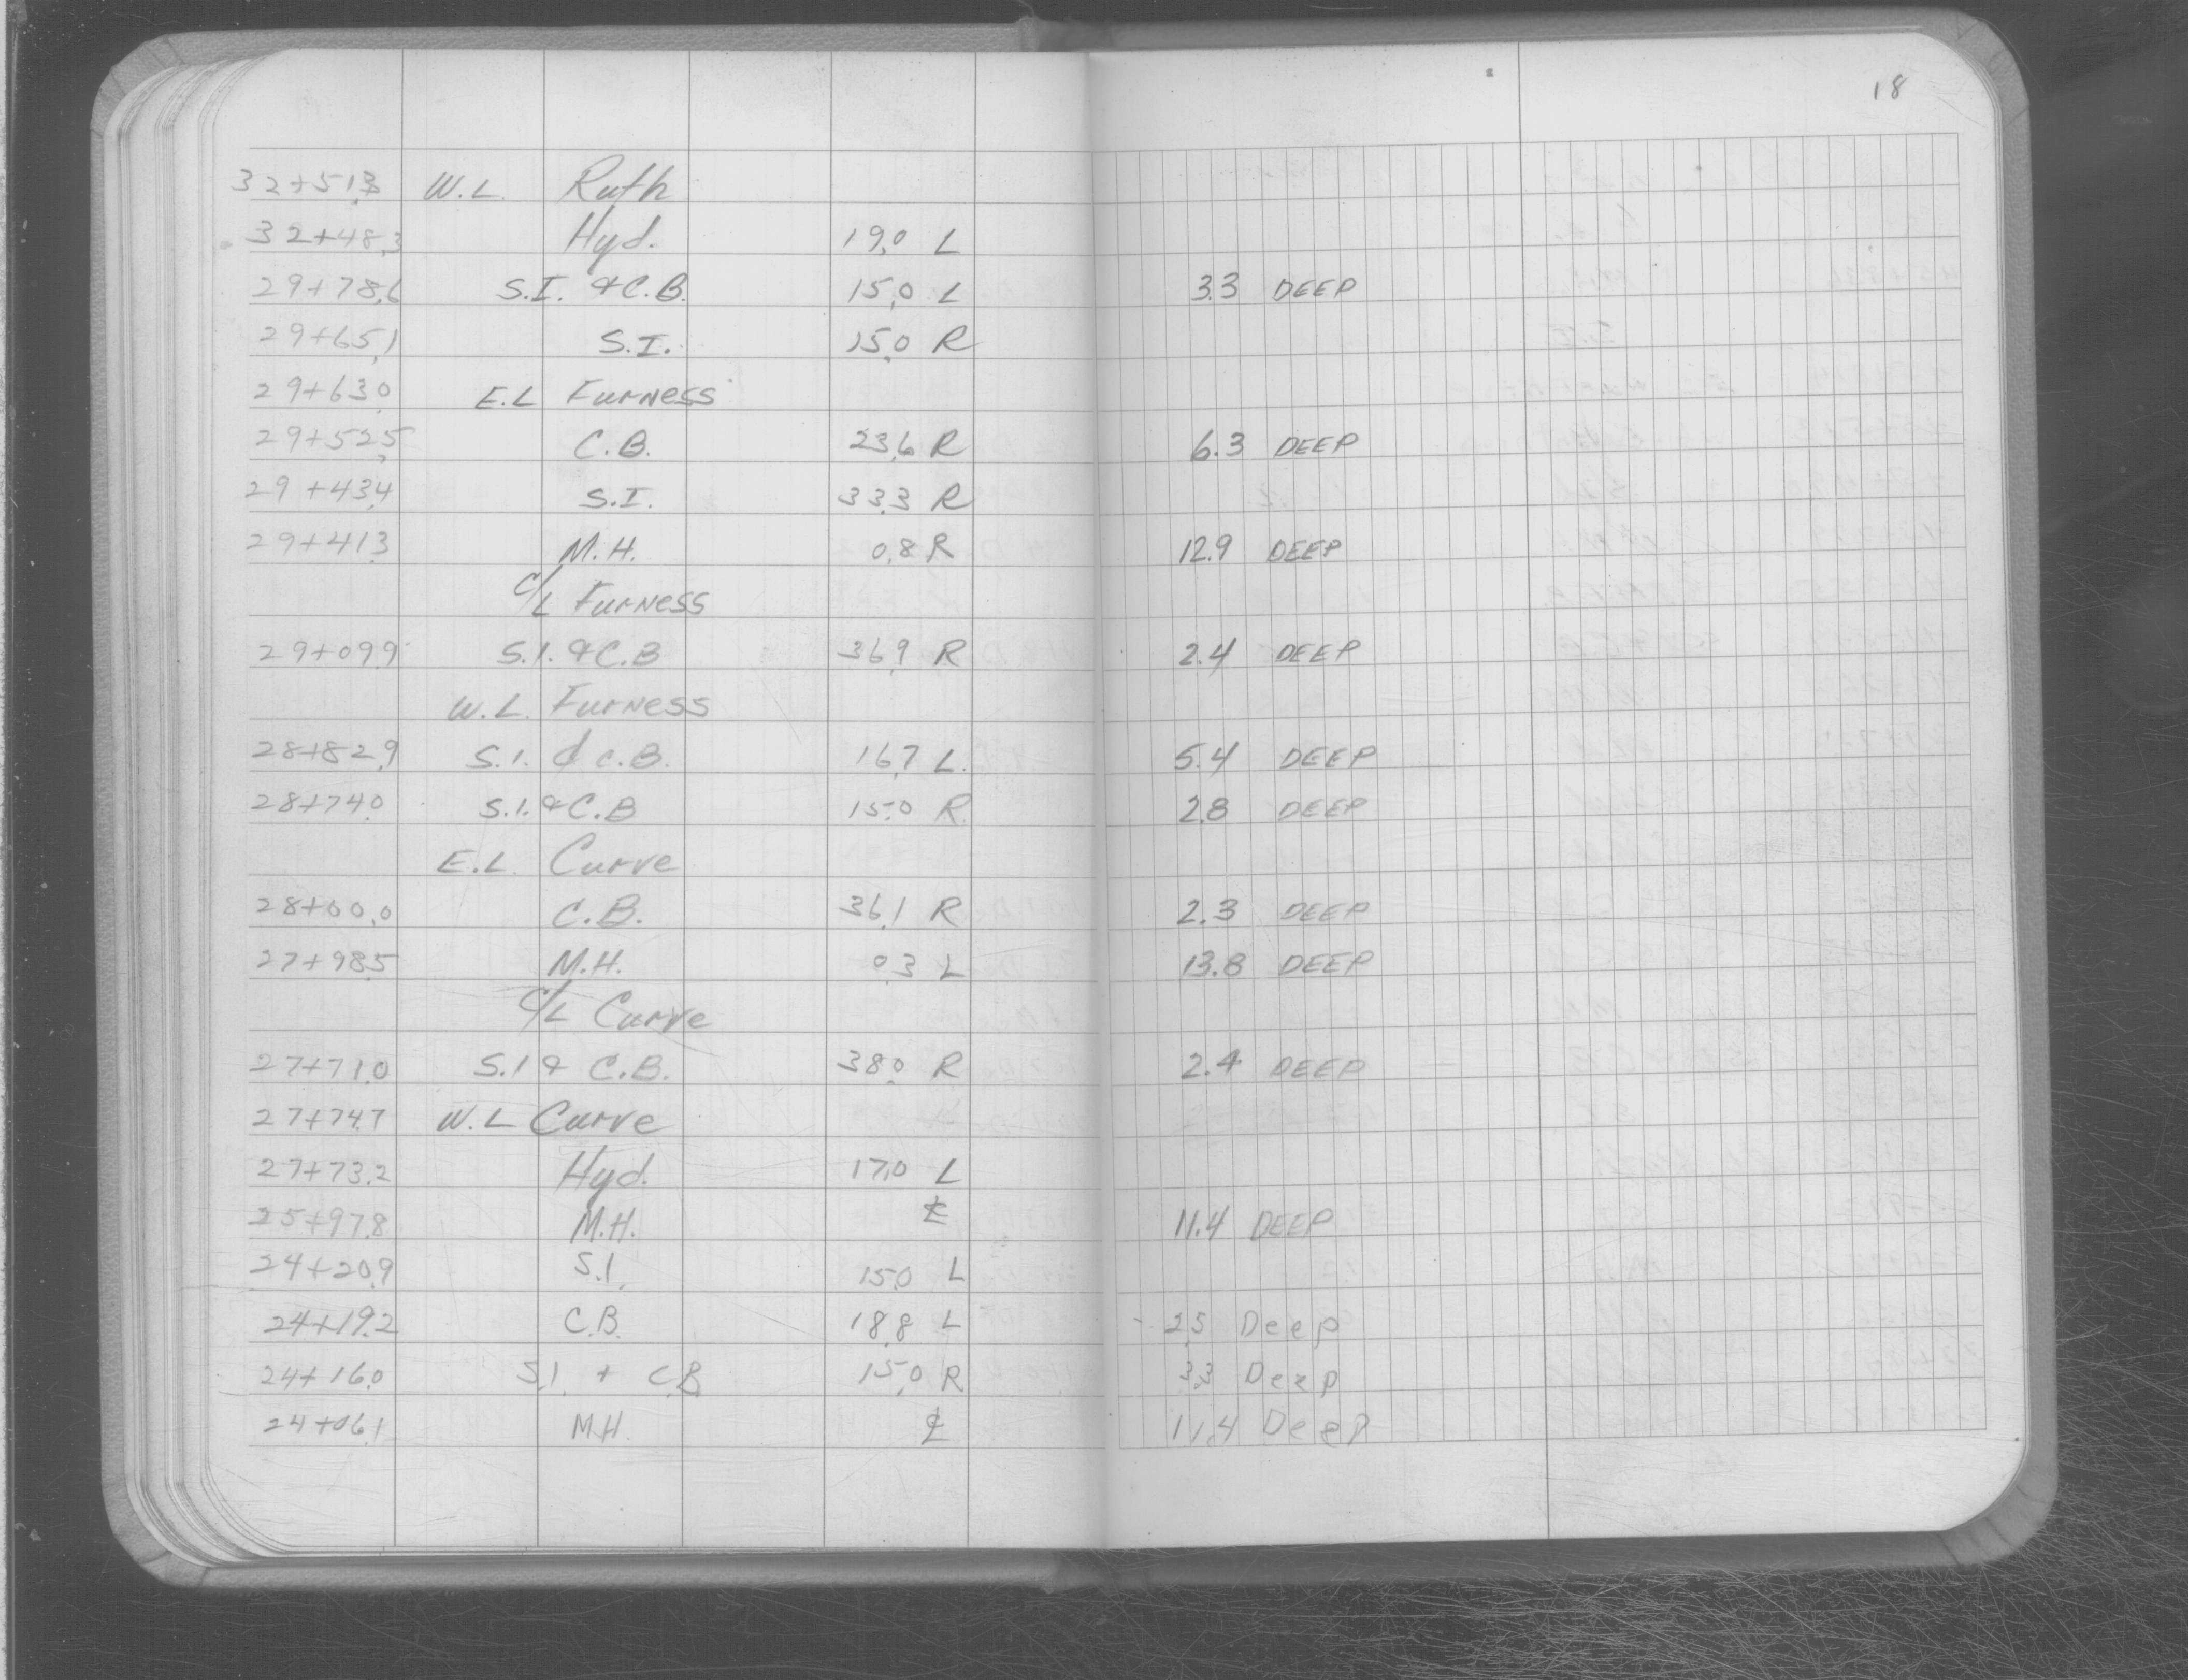 18
32+51.3 W.L. Ruth
32+48.3 Hyd. 19.0 L
29+78.6 S.I. & C.B. 15.0 L 3.3 DEEP
29+65.1 S.I. 15.0 R
29+63.0 E.L Furness
29+52.5 C.B. 23.6 R 6.3 DEEP
29+43.4 S.I. 33.3 R
29+41.3 M.H. 0.8 R 12.9 DEEP
C/L Furness
29+09.9 S.I. & C.B 36.9 R 2.4 DEEP
W.L. Furness
28+82.9 S.I. & C.B. 16.7 L. 5.4 DEEP
28+74.0 S.I. & C.B 15.0 R. 2.8 DEEP
E.L. Curve
28+00.0 C.B. 36.1 R 2.3 DEEP
27+98.5 M.H. 0.3 L 13.8 DEEP
C/L Curve
27+71.0 S.I & C.B. 38.0 R 2.4 DEEP
27+74.7 W.L Curve
27+73.2 Hyd. 17.0 L
25+97.8 M.H. ℄ 11.4 DEEP
24+20.9 S.I. 15.0 L
24+19.2 C.B. 18.8 L 2.5 Deep
24+16.0 S.I. + C.B 15.0 R 3.3 Deep
24+06.1 M.H. ℄ 11.4 DeeP